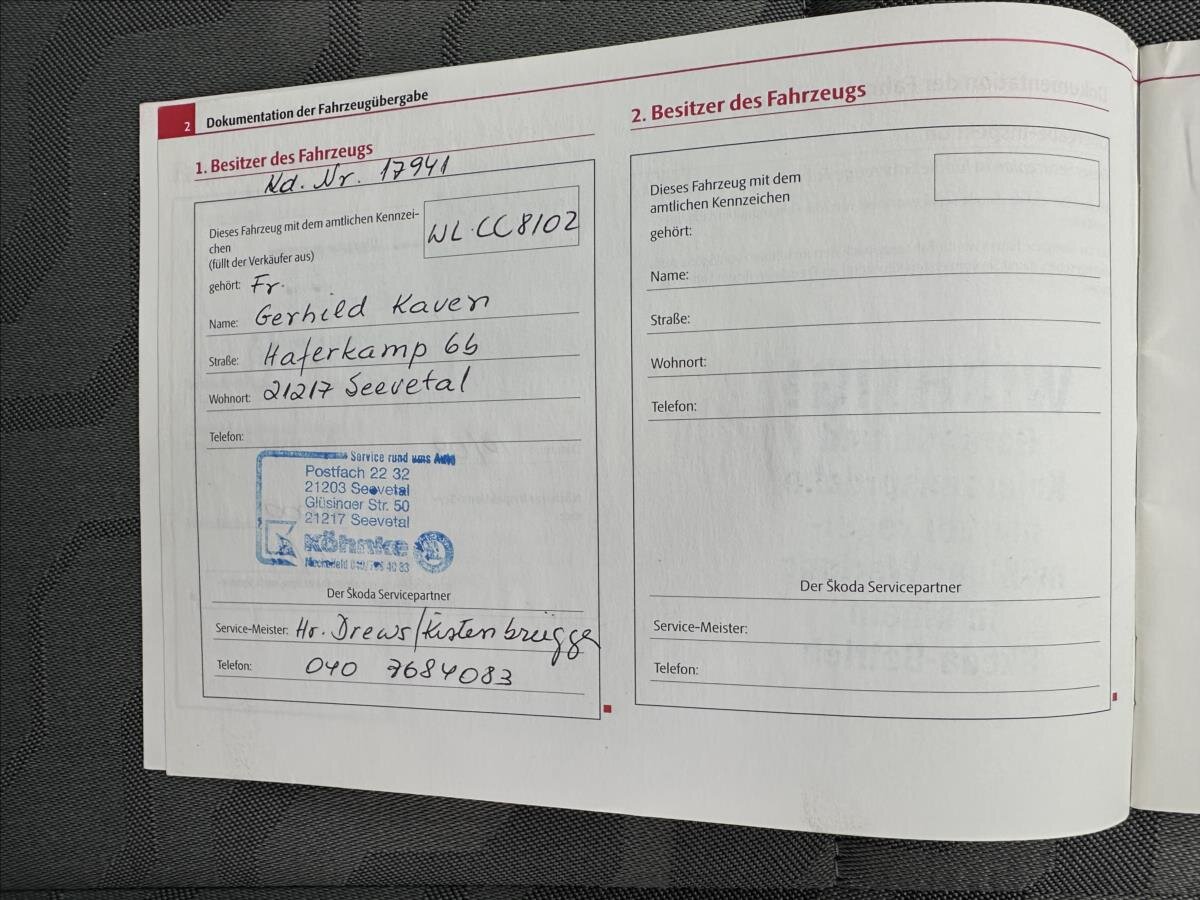 2 Dokumentation der Fahrzeugübergabe
1. Besitzer des Fahrzeugs
Kd. Nr. 17941
Dieses Fahrzeug mit dem amtlichen Kennzei-
chen
(füllt der Verkäufer aus)
WL-CC8102
gehört: Fr.
Name: Gerhild Kaven
Straße: Haferkamp 6b
Wohnort: 21217 Seevetal
Telefon:
Service rund ums Auto
Postfach 22 32
21203 Seevetal
Glüsinger Str. 50
21217 Seevetal
Köhnke
Der Škoda Servicepartner
Service-Meister: Hr. Drews/Kistenbrügge
Telefon: 040 7684083
2. Besitzer des Fahrzeugs
Dieses Fahrzeug mit dem
amtlichen Kennzeichen
gehört:
Name:
Straße:
Wohnort:
Telefon:
Der Škoda Servicepartner
Service-Meister:
Telefon: